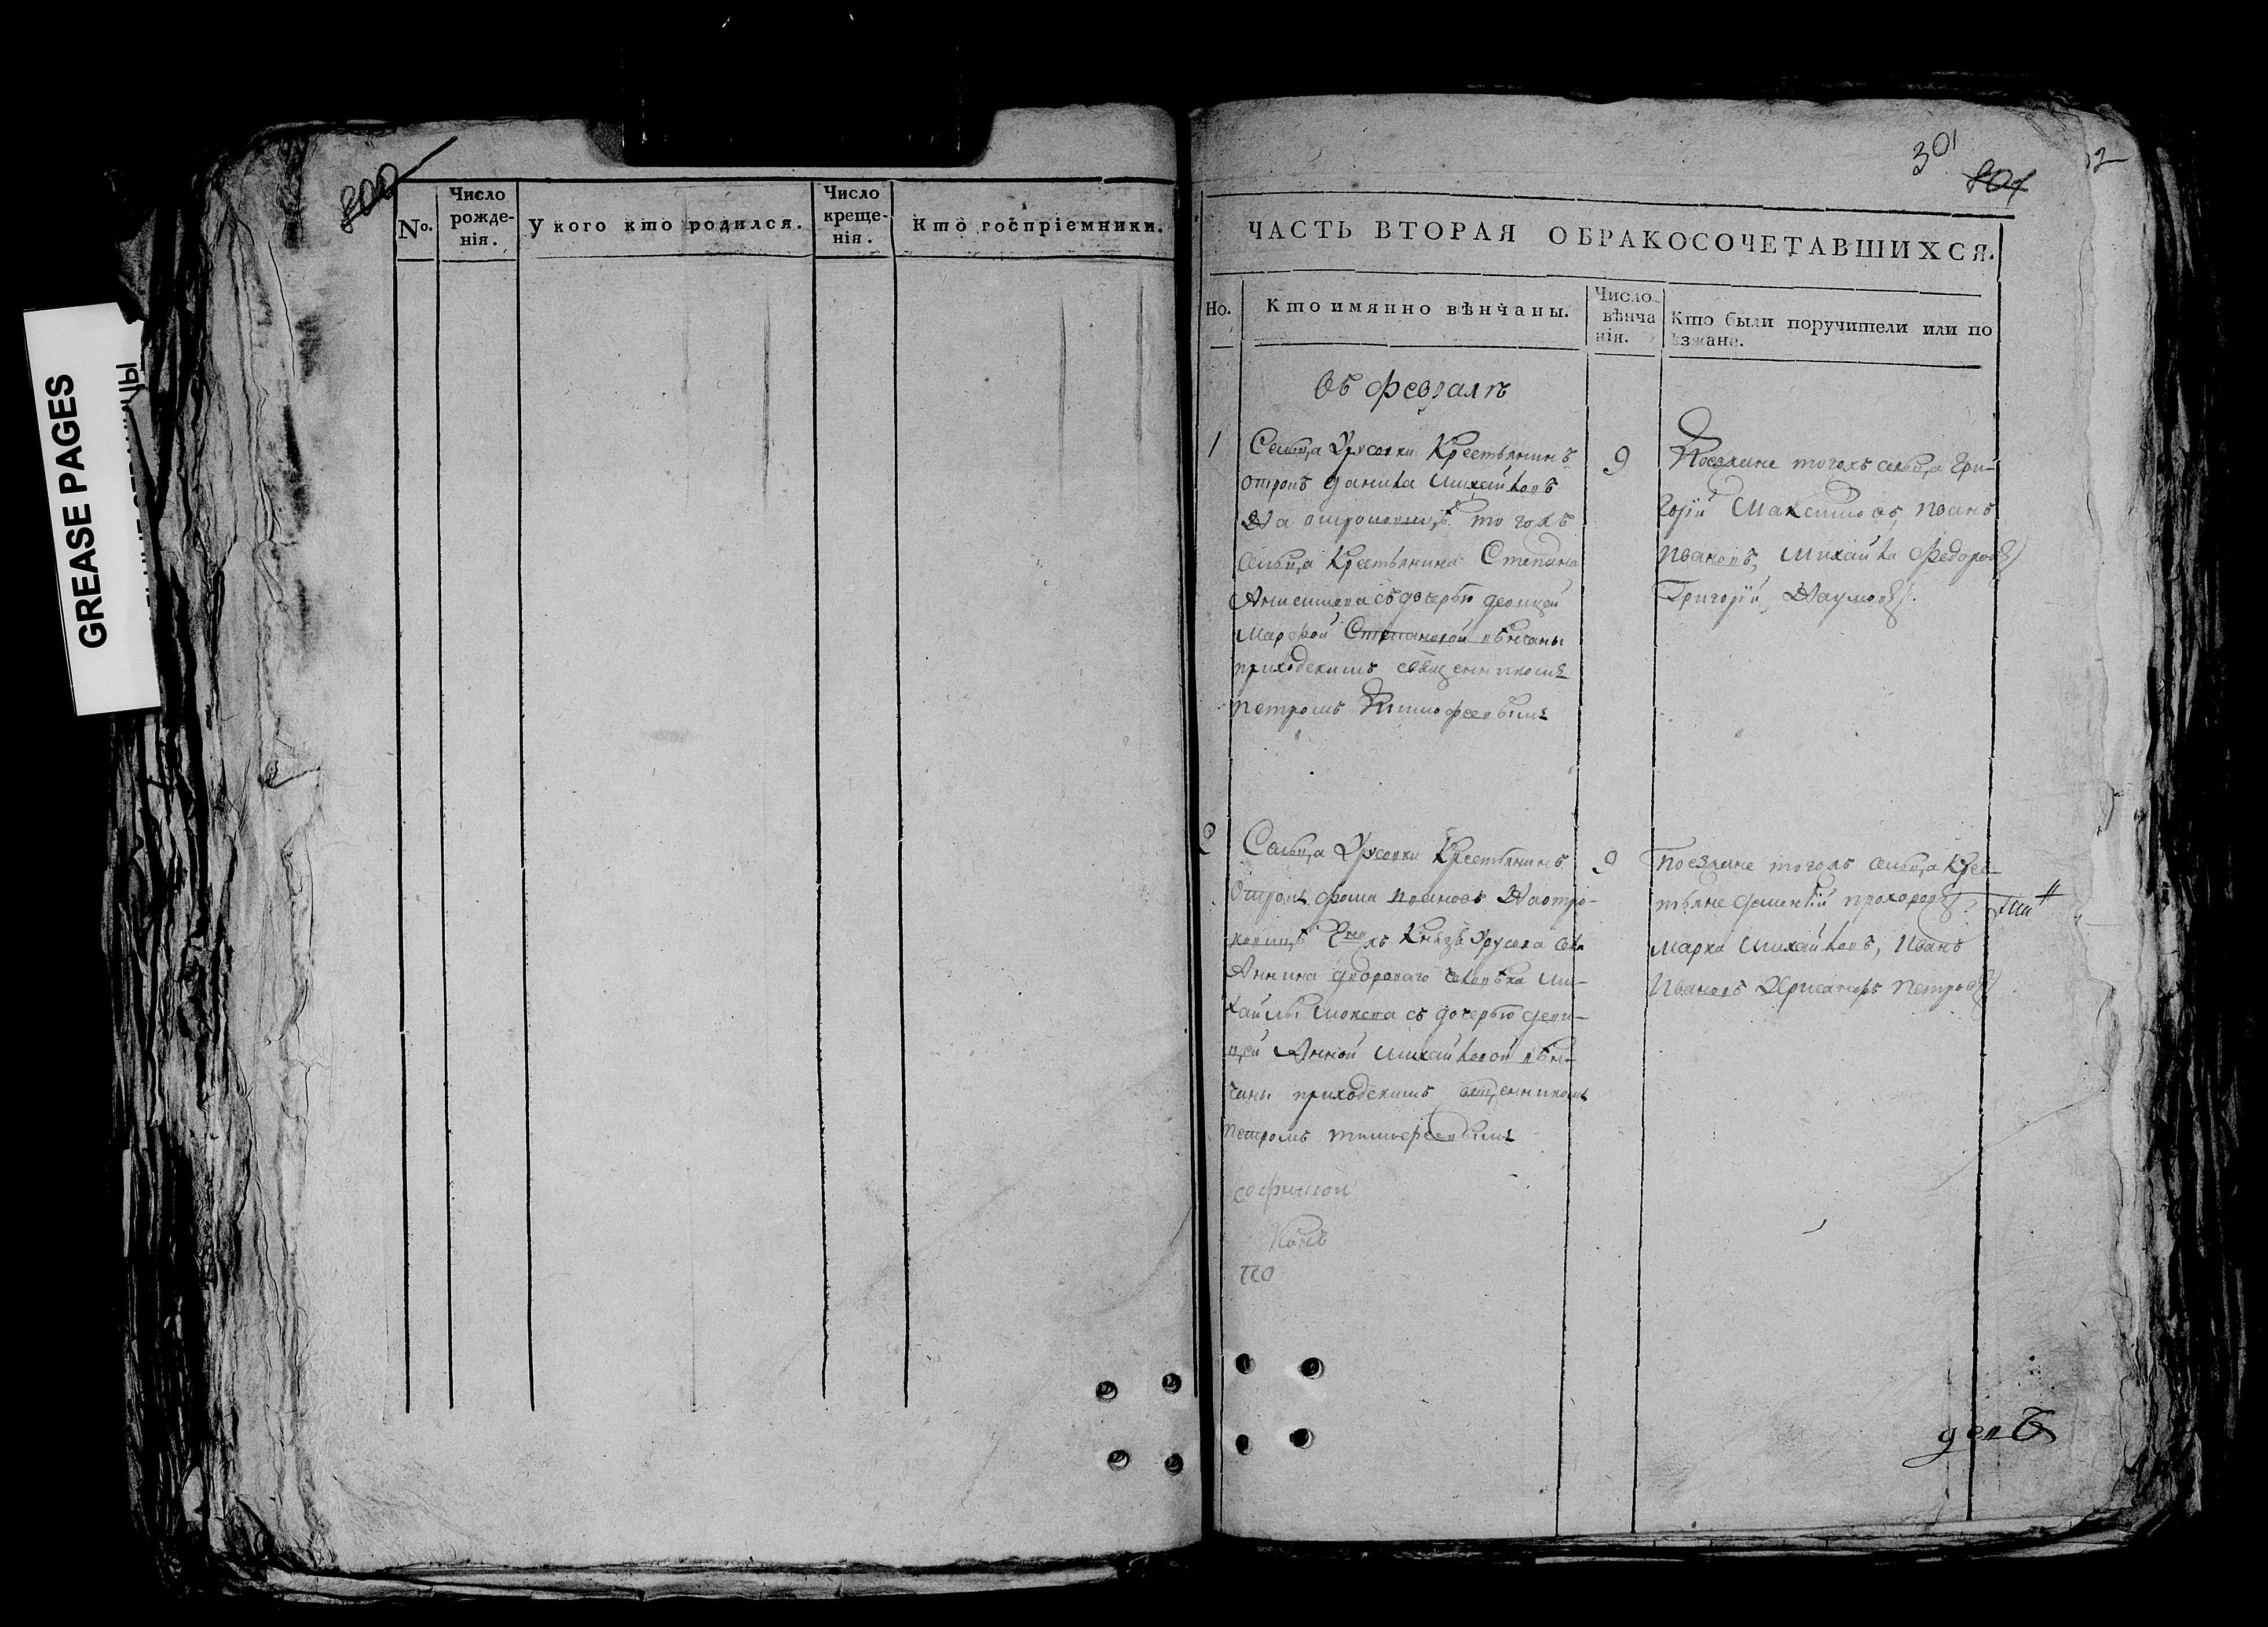 GREASE PAGES
300
No.
Число рожденія.
У кого кто родился.
Число крещенія.
Кто воспріемники.
301
801
12
ЧАСТЬ ВТОРАЯ ОБРАКОСОЧЕТАВШИХСЯ.
Но.
Кто имянно вѣнчаны.
Число вѣнчанія.
Кто были поручители или поѣзжане.
въ февралѣ
1
Сельца Урусовки Крестьянинъ
отрокъ данила Михайловъ
На отроковицѣ тогожъ
сельца Крестьянина Степана
Анисимова съ дочерью девицей
Марфой Степановой вѣнчаны
приходскимъ священникомъ
петромъ Тимофеевымъ
9
Поезжане тогожъ сельца Гри-
горій Максимовъ, иванъ
ивановъ, михайла федоровъ
Григорій Наумовъ.
2
Сельца Урусовки Крестьянинъ
Отрокъ фома ивановъ На отро-
ковицѣ Князя Урусова
дворового человѣка Ми-
хайлы съ дочерью деви-
цей Анной михайловой вѣн-
чаны приходскимъ священникомъ
петромъ тимофеевымъ
9
поезжане тогожъ сельца Крес-
тьяне дементій прохоровъ
марка михайловъ, иванъ
Ивановъ Хрисанфъ петровъ
по